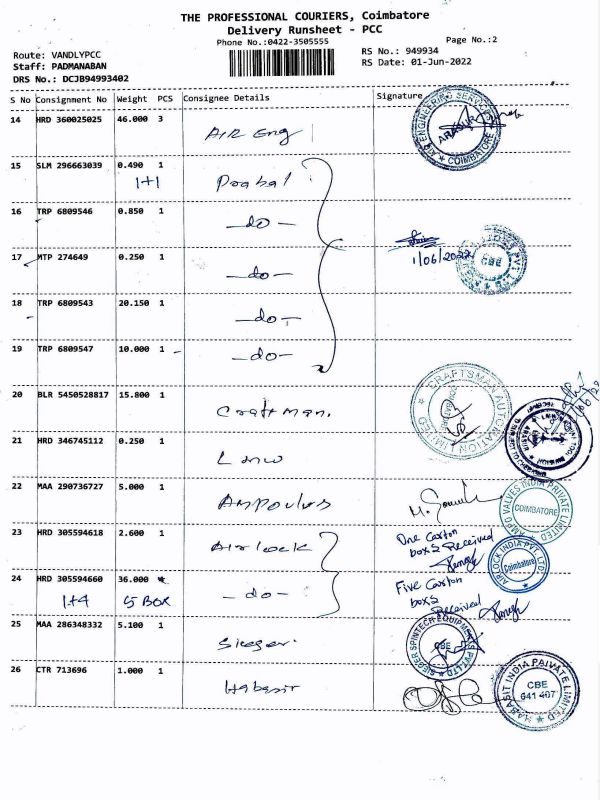 THE PROFESSIONAL COURIERS, Coimbatore
Delivery Runsheet - PCC
Phone No.:0422-3505555
Page No.:2
Route: VANDLYPCC
Staff: PADMANABAN
DRS No.: DCJB94993402
RS No.: 949934
RS Date: 01-Jun-2022
S No Consignment No Weight PCS Consignee Details Signature
14 HRD 360025025 46.000 3 AIR Eng
ENGINEERING SERVICES COIMBATORE
15 SLM 296663039 0.490 1
1+1
16 TRP 6809546 0.850 1 -do-
17 MTP 274649 0.250 1 -do-
1/06/2022
CBE
18 TRP 6809543 20.150 1 -do-
19 TRP 6809547 10.000 1 -do-
20 BLR 5450528817 15.800 1 Craftman.
CRAFTSMAN AUTOMATION LIMITED
21 HRD 346745112 0.250 1
22 MAA 290736727 5.000 1
AMPO VALVES INDIA PRIVATE LIMITED
COIMBATORE
23 HRD 305594618 2.600 1 Airlock
One Carton
boxs Received
AIRLOCK INDIA PVT. LTD.
Coimbatore
24 HRD 305594660 36.000 -do-
1+4 5 BOX
Five Carton
boxs
Received
25 MAA 286348332 5.100 1
SIEGER SPINTECH EQUIPMENTS PVT LTD
CBE
26 CTR 713696 1.000 1 Habasit
HABASIT INDIA PRIVATE LIMITED
CBE
641 407